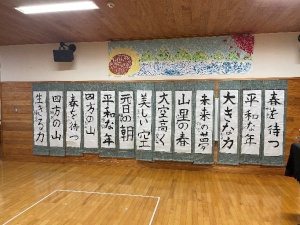 春を待つ
平和な年
大きな力
未来の夢
山里の春
大空高く
美しい空
元日の朝
平和な年
四方の山
春を待つ
四方の山
生きる力